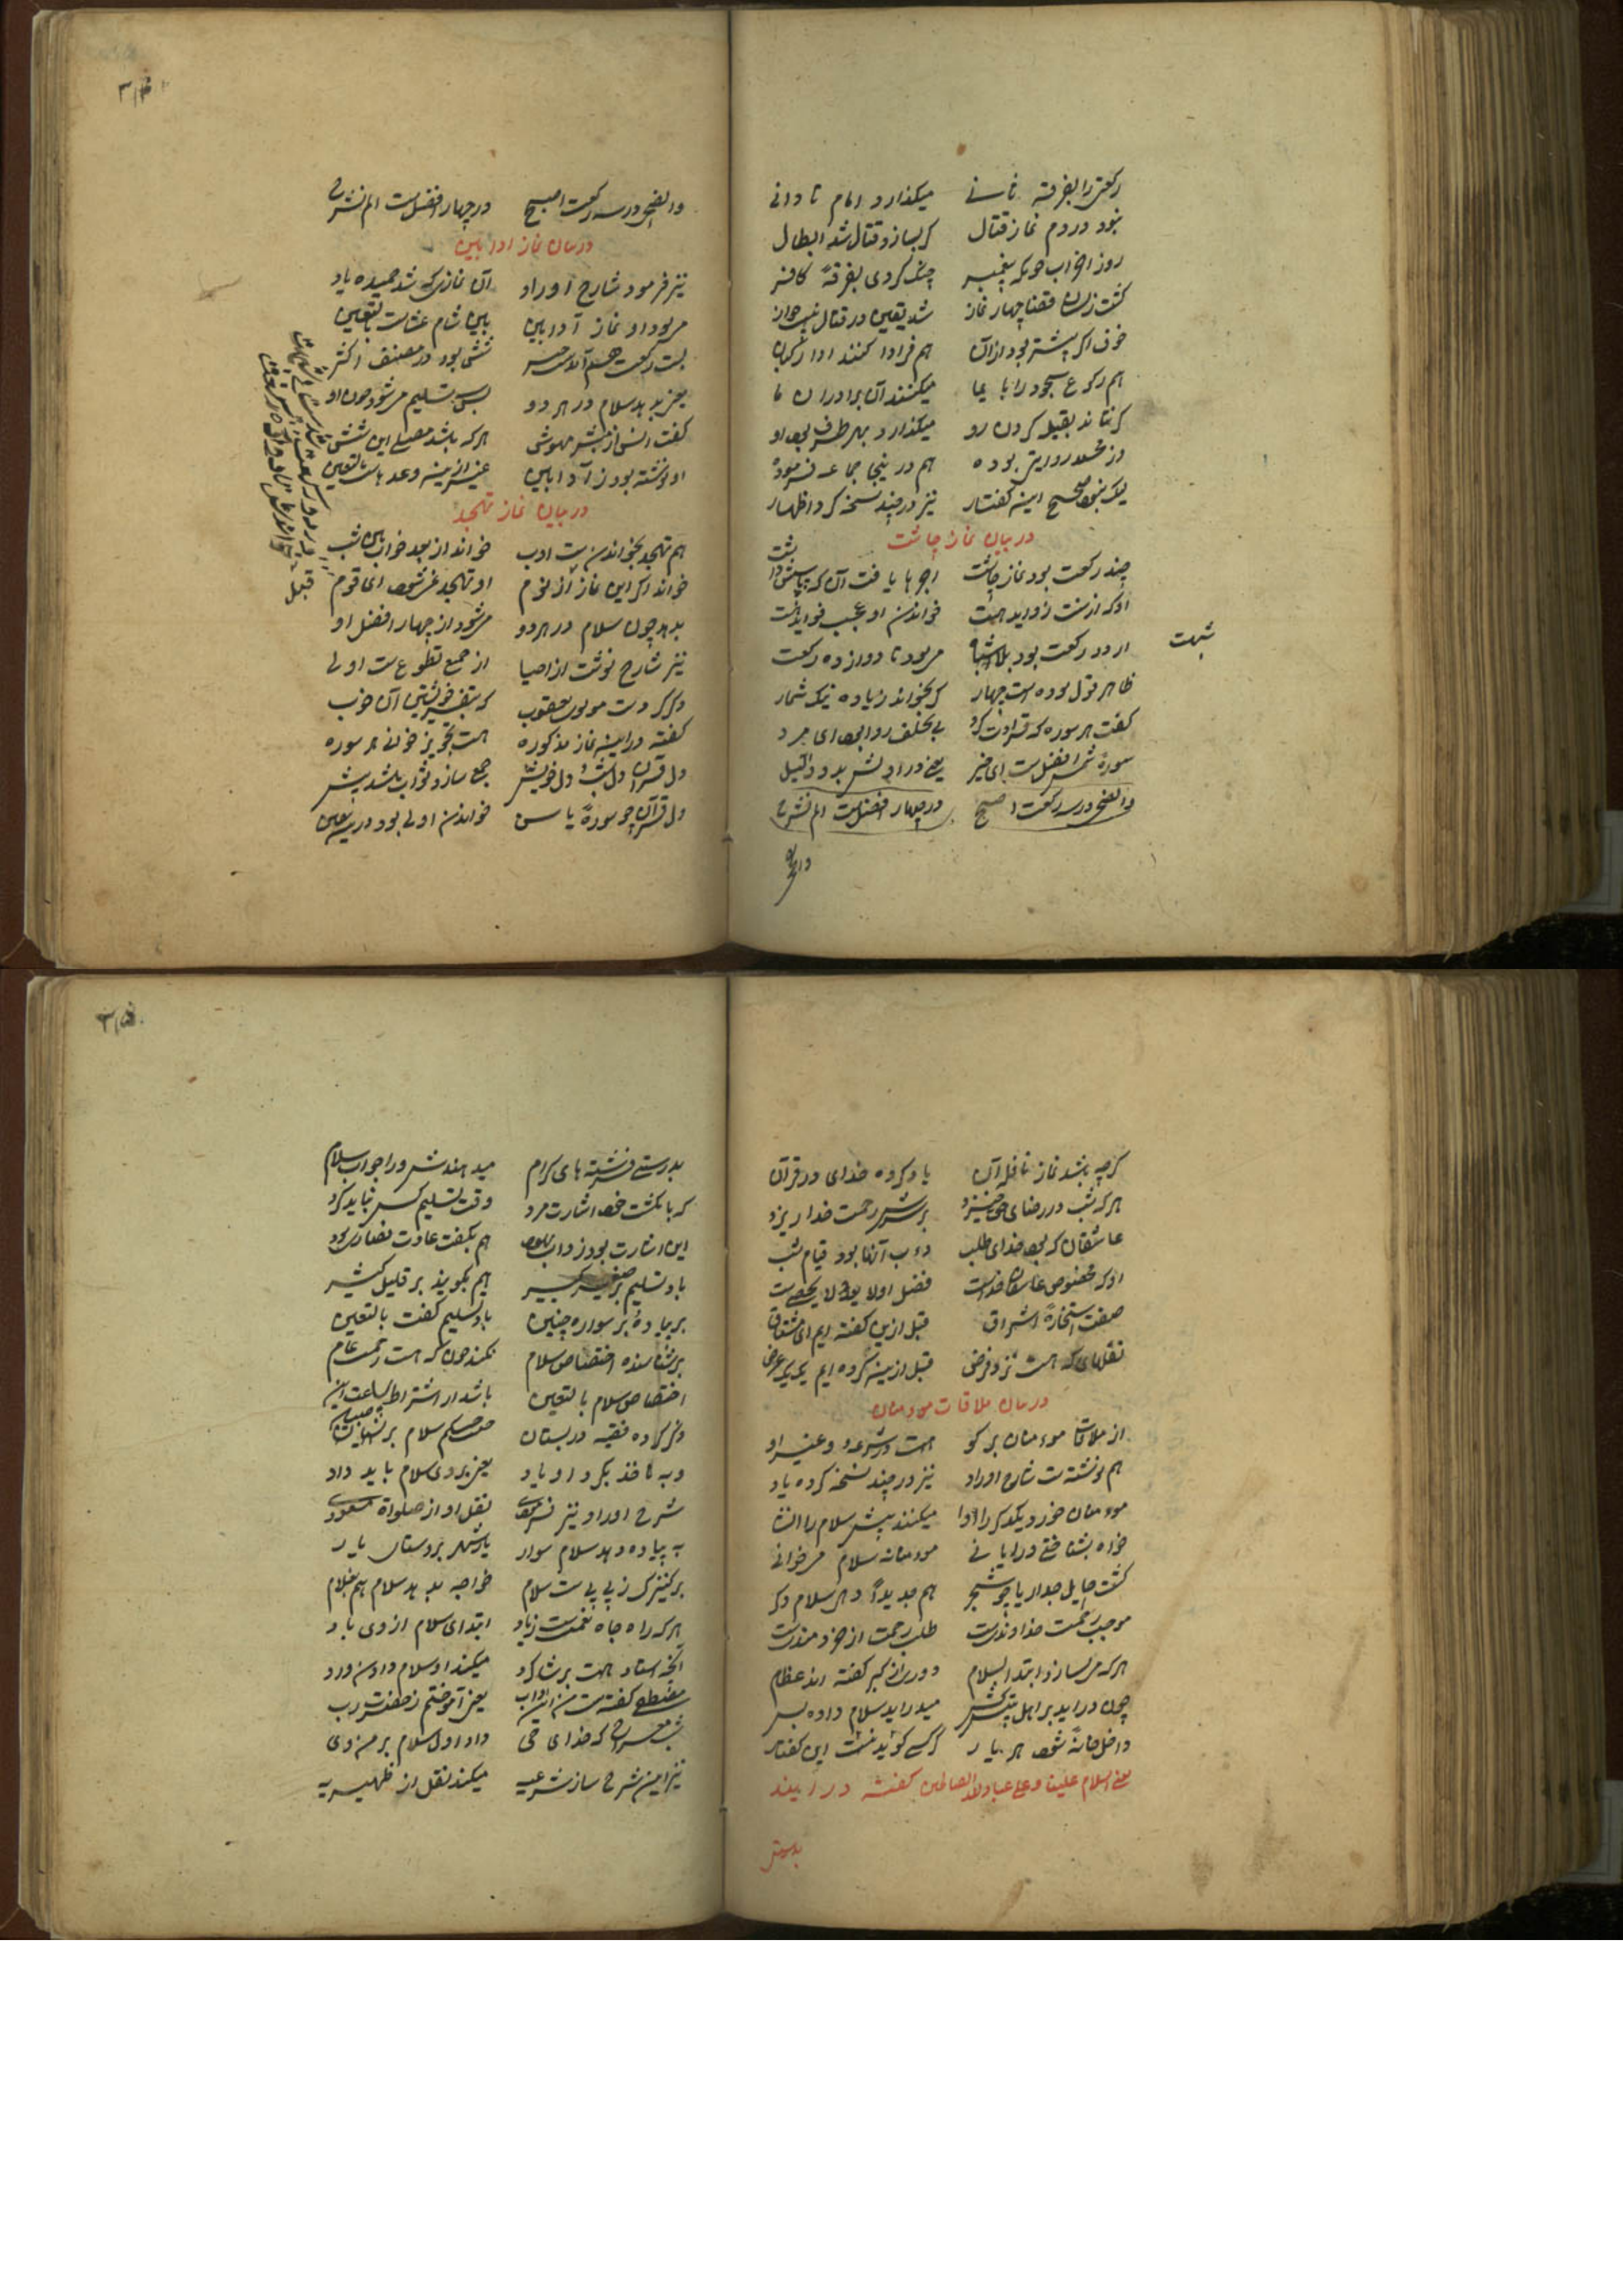 رکعتی را بفرقه ثانے میکذارد امام تا دانی
نبود در دم نماز قتال کر بسازد قتال شد ابطال
روز احزاب چونکه پیغمبر جنک کردی بفرقهٔ کافر
کشت زیشان قضا چهار نماز شد یقین در قتال نیست جواز
خوف اکر بیشتر بود از آن هم فرادا کنند ادا رکبان
هم رکوع سجود را با یما میکنند آن برادران ما
کر نتاند بقبله کردن رو میکذارد بهر طرف او
هم در ینجا جماعه فرموده
نیز در چند نسخه کرد اظهار
در بیان نماز چاشت
چند رکعت بود نماز چاشت اجرها یافت آن که
خواندن او عجب فواید هست
ار دو رکعت بود بلا شبهت می بود تا دوازده رکعت
شبهت
ظاهر قول بوده است چهار کر بخواند زیاده نیک شمار
کفت هر سوره که قراءت کرد بی تخلف روا بود ای مرد
سورهٔ شمس افضل است ای خیر یعنی در اولش بود واللیل
والضحی در سه رکعت اصبح در چهار افضل است الم نشرح
والضحی
والضحی در سه رکعت اصبح در چهار افضل است الم نشرح
در بیان نماز اوابین
نیز فرمود شارح اوراد آن نمازی که شد حمیده یاد
می بود او نماز اوابین بین شام عشاست بالتعین
بست رکعت ششی بود در مصنف اکثر
یعنی بدهد سلام در هر دو بس بتسلیم می شود چون او
کفت انس از مبشر مهوشی هر که باشد مصلی این ششی
او نوشته بود ز اوابین
در بیان نماز تهجد
هم تهجد بخواندن ست ادب خواند از بعد خواب شب
خواند اکر این نماز از نوم او تهجد نمی شود ای قوم
قبل
بدهد چون سلام در هر دو می شود از چهار افضل او
نیز شارح نوشت از احیا از جمیع تطوع ست اولی
ذکر کردست مولوی یعقوب که بتفسیر خویشتن آن خوب
کفته در اینه نماز مذکوره هست تجویز خواندن هر سوره
دل قرآن دل شب و دل خویش جمع سازد ثواب باشد بیش
دل قرآن چو سورهٔ یاسین خواندن اولی بود در ینه یقین
کرچه باشد نماز نافله آن یاد کرده خدای در قرآن
هر که شب در رضای حق خیزد بر سرش رحمت خدا ریزد
عاشقان که بود خدای طلب دءب آنها بود قیام شب
او که مخصوص عاشقان خداست فضل او لا یعد لا یحصی ست
صفت استخارهٔ اشراق قبل ازین کفته ایم ای مشتاق
نفلهای که هست نزد فرض قبل ازینه کرده ایم یک یک عرض
در بیان ملاقات مومنان
از ملاقات مومنان بر کو هست در شرعه و غیر او
هم نوشته ست شارح اوراد نیز در چند نسخه کرده یاد
مومنان خود یکدکر را ادا میکنند پیش سلام را انشا
خواه بشناختی ورا یا نی مومنانه سلام می خوانی
کشت حایل جدار یا چو شجر هم جدیداً دهی سلام دکر
موجب رحمت خداوندست طلب رحمت از خردمندست
هر که می سازد ابتدا بسلام دور از کبر کفته اند عظام
چون دراید بر اهل بیتش میدراید سلام داده بسر
داخل خانهٔ شود هر بار کر کسی کوید نیست این کفتار
یعنی السلام علینا و علی عباد الله الصالحین کفته در ایند
بدرستی
بدرستی فرشته های کرام میدهندش ورا جواب سلام
که با نکشت خود اشارت مرد وقت تسلیم کس نباید کرد
این اشارت بود ز داب یهود هم بکفت عادت نصاری بود
باد تسلیم بر صغیر کبیر هم بکویند بر قلیل کثیر
بر پیادهٔ بر سواره چنین باد تسلیم کفت بالتعین
بر شناسنده اختصاص سلام نکند چون که هست رحمت عام
اختصاص سلام بالتعین باشد از اشتراط ساعت این
ذکر کرده فقیه در بستان هست حکم سلام بر صبیان
یعنی بروی سلام باید داد
شرح اوراد نیز نقل او از صلواة مسعودی
به پیاده دهد سلام سوار یا بشهر بروستای یار
بر کنیزک ز بی بی ست سلام خواجه بدهد سلام هم بغلام
هر که را جاه نعمت ست زیاد ابتدای سلام از وی باد
آنکه استاد هست بر شاکرد میکند او سلام دادن ورد
مصطفی کفته ست من این آداب یعنی آموختم ز حضرت رب
شب معراج که خدای حی داد اول سلام بر من وی
نیز این شرح ساز شرعیه میکند نقل از ظهیریه